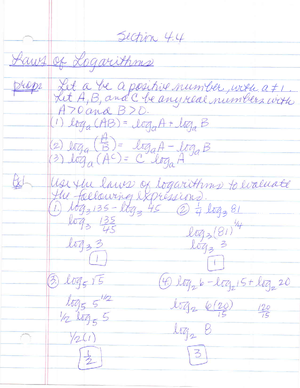 Section 4.4
Laws of Logarithms
props Let a be a positive number, with a≠1.
Let A, B, and C be any real numbers with
A>0 and B>0.
(1) logₐ(AB) = logₐA + logₐB
(2) logₐ(A/B) = logₐA - logₐB
(3) logₐ(Aᶜ) = C logₐA
Use the laws of logarithms to evaluate
the following expressions.
① log₃135 - log₃45 ② ¼ log₃81
log₃ 135/45 log₃(81)^¼
log₃3 log₃3
1 1
③ log₅√5 ④ log₂6 - log₂15 + log₂20
log₅5^½ log₂ 6(20)/15 120/15
½ log₅5 log₂8
½(1) 3
½